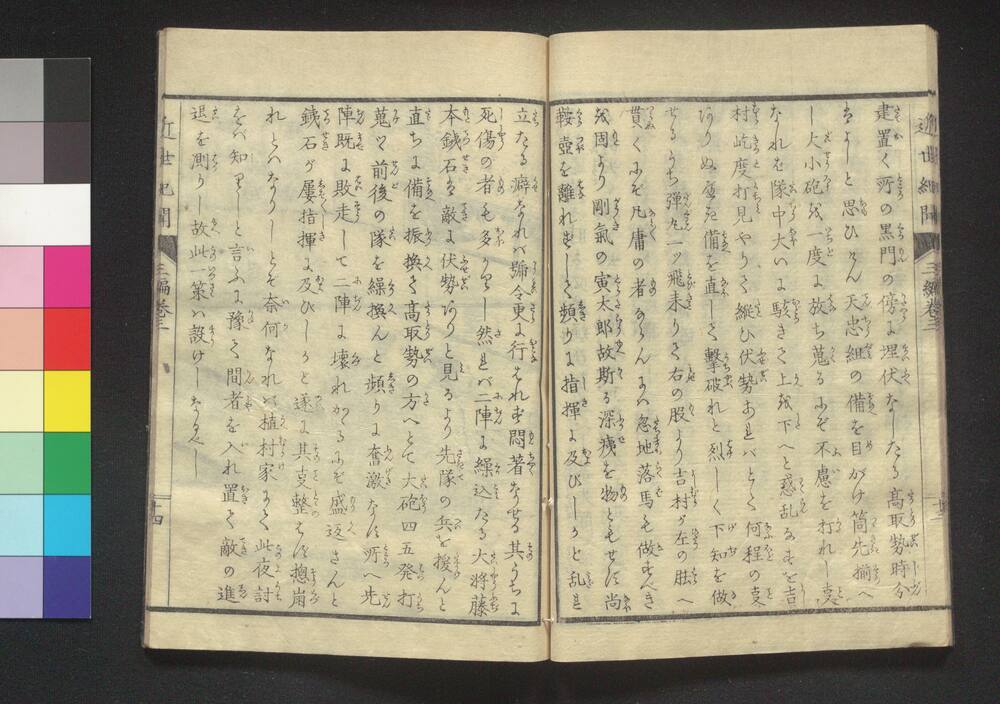 近世紀聞 三編巻三 十三
建置く所の黒門の傍に埋伏なしたる高取勢時分
はよしと思ひけん天忠組の備を目がけ筒先揃へ
し大小砲を一度に放ち蒐るにぞ不慮を打れし事
なれば隊中大いに駭きて上を下へと惑乱なすを吉
村屹度打見やりて縦ひ伏勢あればとて何程の事
ありぬべき備を直して撃破れと烈しく下知を做
せるうち弾丸一ッ飛来りて右の股より吉村が左の肚へ
貫くにぞ凡庸の者ならんには忽地落馬も做すべき
を固より剛氣の寅太郎故斯る深痍を物ともせず尚
鞍壺を離れずして頻りに指揮に及びしかど乱れ
立たる癖なれば号令更に行はれず悶著なせる其うちに
死傷の者も多かりし然れば二陣に繰込たる大将藤
本鉄石は敵に伏勢ありと見るより先隊の兵を援んと
直ちに備を振換て高取勢の方へとて大砲四五発打
蒐つゝ前後の隊を繰換んと頻りに奮激なす所へ先
陣既に敗走して二陣に壊れかゝるにぞ盛返さんと
鉄石が屡指揮に及びしかど遂に其事整はず摠崩
れとはなりしとぞ奈何なれば植村家にて此夜討
をバ知りしと言ふに豫て間者を入れ置て敵の進
退を測りし故此一策は設けしなるべし
近世紀聞 三編巻三 十四